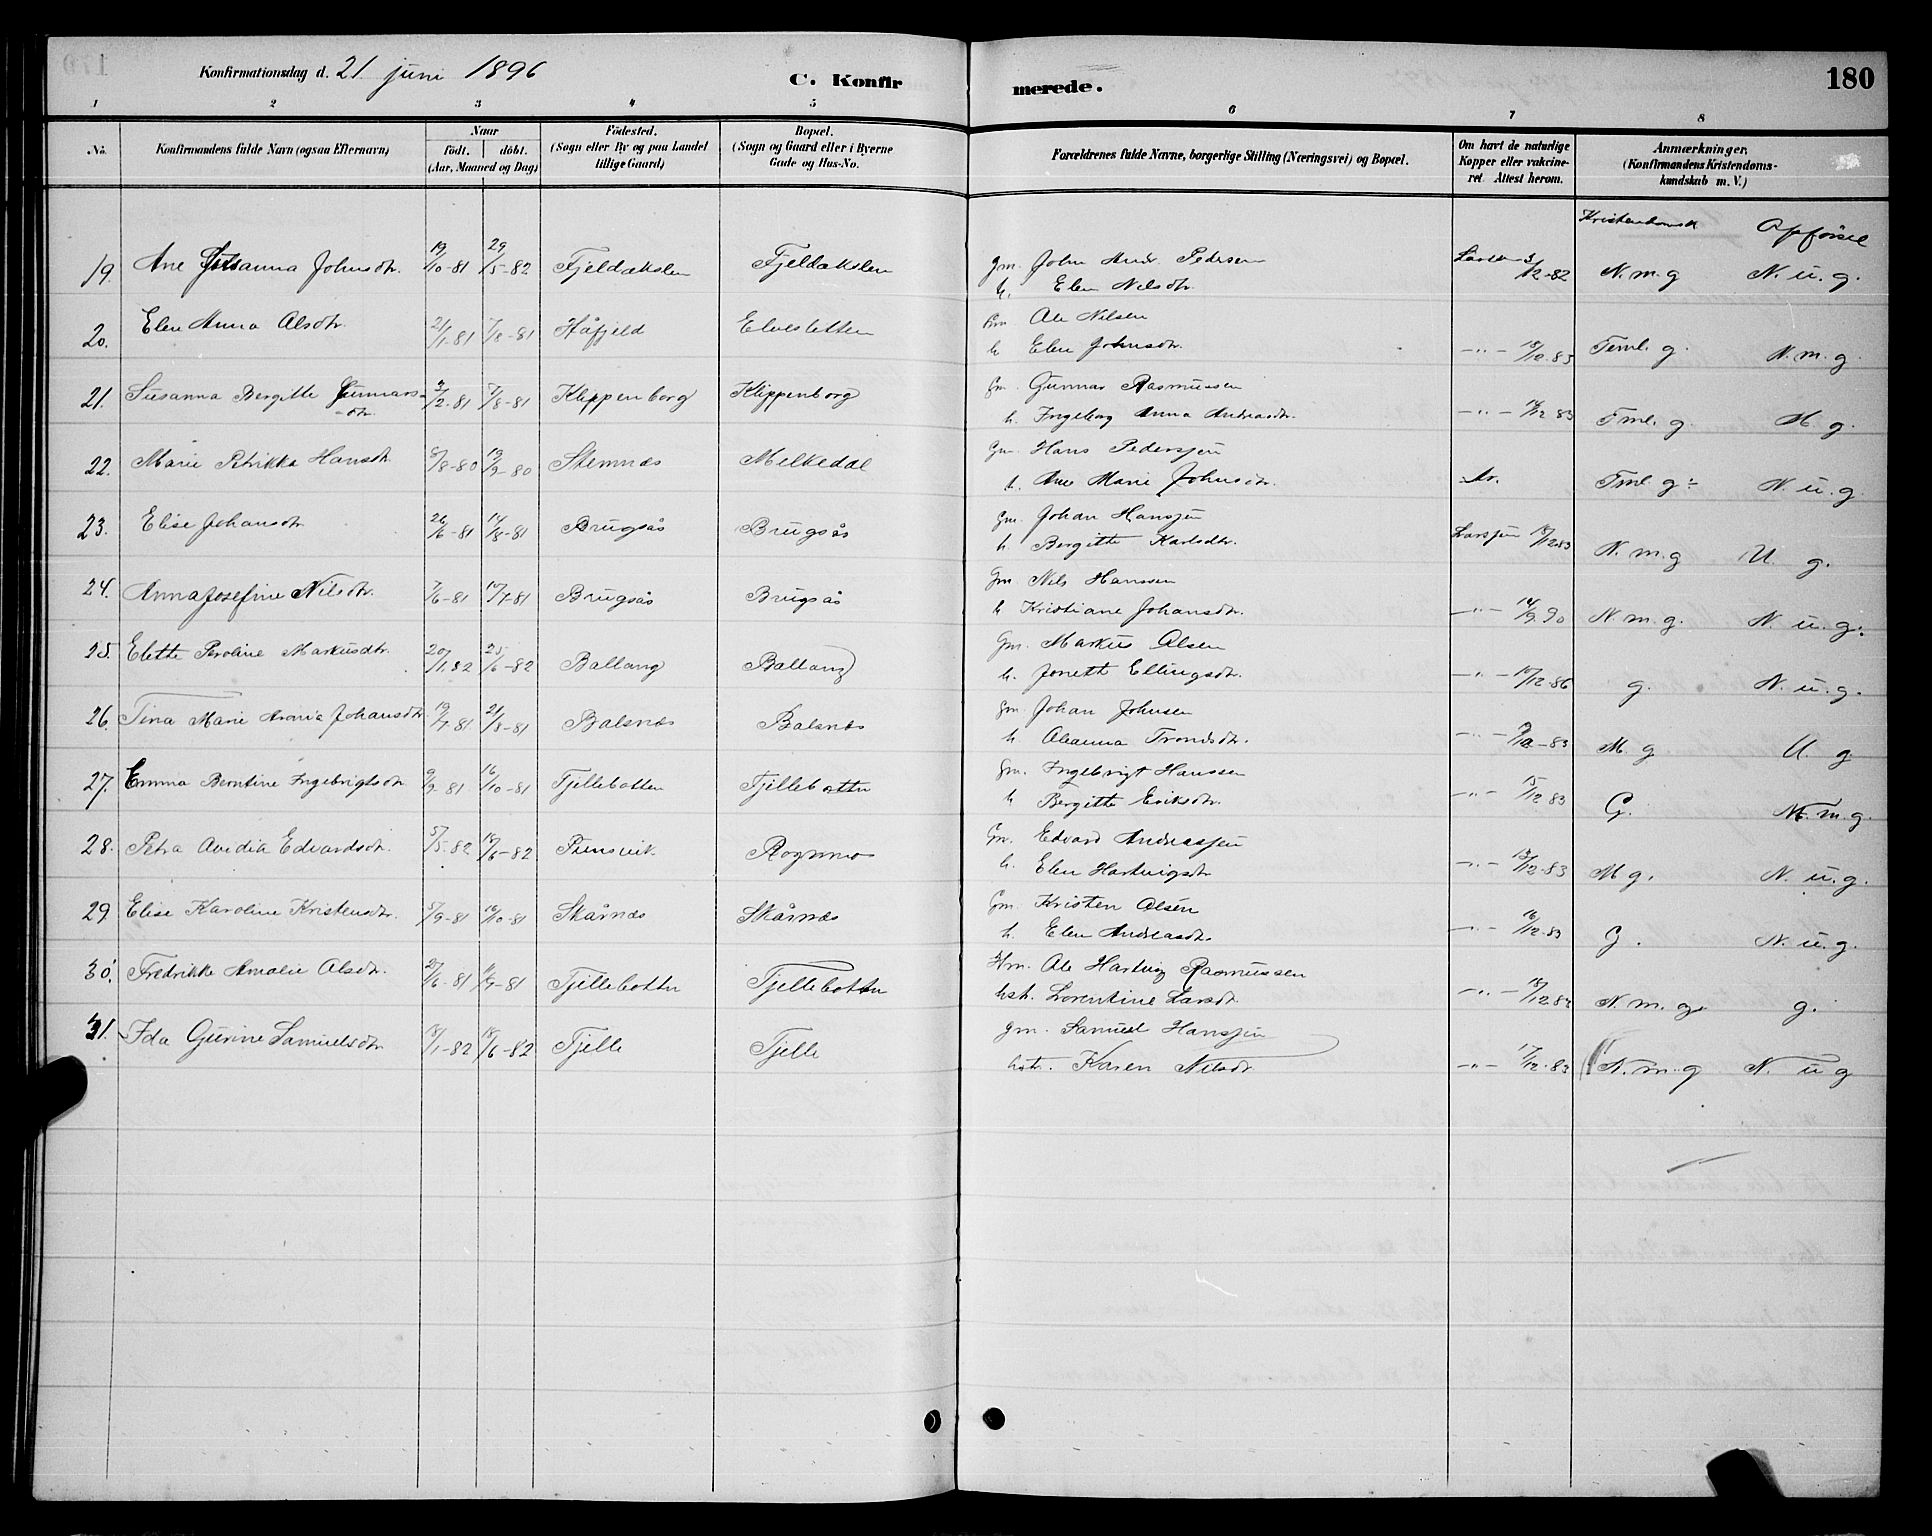 Konfirmationsdag d. 21 juni 1896
C. Konfirmerede.
180
1 2 3 4 5 6 7 8
No. Konfirmandens fulde Navn (ogsaa Efternavn) Naar født. døbt. (Aar, Maaned og Dag) Födested. (Sogn eller By og paa Landet tillige Gaard) Bopæl. (Sogn og Gaard eller i Byerne Gade og Hus-No. Forældrenes fulde Navne, borgerlige Stilling (Næringsvei) og Bopæl. Om havt de naturlige Kopper eller vakcineret. Attest herom. Anmærkninger. (Konfirmandens Kristendomskundskab m. V.)
Kristendomsk Opførsel
19. Ane Johanna Johnsdtr. 19/10-81 29/5-82 Fjeldakslen Fjeldakslen gm. John Andr. Pedersen Larsen 3/12-82 N. m. g N. u. g.
h. Elen Nilsdtr.
20. Elen Anna Olsdtr. 21/1-81 7/8-81 Håfjeld Elvesletten Gm Ole Nilsen
h Elen Johnsdtr. -"- 18/10-83 Teml. g. N. m. g.
21. Susanna Bergitte Gunnarsdtr. 3/2-81 7/8-81 Klippenborg Klippenborg Gm. Gunnar Rasmussen
h. Ingeborg Anna Andreasdtr. -"- /12 83 Tml. g. M g.
22. Marie Petrikka Hansdtr. 8/8-80 19/9-80 Stemnæs Melkedal Gm. Hans Pederssen
h. Ane Marie Johnsdtr. Tml. g÷ N. u. g.
23. Elise Johansdtr 26/6-81 14/8-81 Brugsås Brugsås Gm. Johan Hanssen
h. Bergitte Karlsdtr. Larssen /12 83 N. m. g U. g.
24. Anna Josefine Nilsdtr. 7/6-81 10/7-81 Brugsås Brugsås Gm. Nils Hanssen
h Kristiane Johansdtr. -"- 14/9 90 N. m. g. N. u. g÷
25. Elette Peroline Markusdtr. 20/1 82 25/6-82 Ballang Ballang Gm. Markus Olsen
h. Jonette Ellingsdtr. -"- /12-86 g. N. u. g.
26. Tina Marie Aronia Johansdtr. 19/7 81 21/8-81 Balsnes Balsnes Gm. Johan Johnsen
h Oleanna Trondsdtr. -"- -83 M. g U. g
27. Emma Berntine Ingebrigtsdtr 9/9 81 16/10-81 Tjellebotten Tjellebotten Gm. Ingebrigt Hanssen
h Bergitte Eriksdtr. -"- 15/12 83 G. N. m. g.
28. Petra Avidia Edvardsdtr. 5/5-82 18/6-82 Rensvik Rognmo Gm. Edvard Andreassen
h. Elen Hartvigsdtr -"- 13/12-83 M g. N. u. g.
29 Elise Karoline Kristensdtr. 5/9-81 16/10-81 Skårnæs Skårnæs Gm. Kristen Olsen
h. Elen Andreasdtr. -"- 16/12-83 G. N. u. g.
30. Fredrikke Amalie Olsdtr. 27/6-81 /9-81 Tjellebotten Tjellebotten Hm. Ole Hartvig Rasmussen
hst. Lorentine Larsdtr. -"- 18/12 83 N. m. g. g.
31. Ida Gurine Samuelsdtr 18/1-82 18/6-82 Tjelle Tjelle gm. Samuel Hanssen
hst. Karen Nilsdtr -"- 17/12-83 N. m. g N. u g